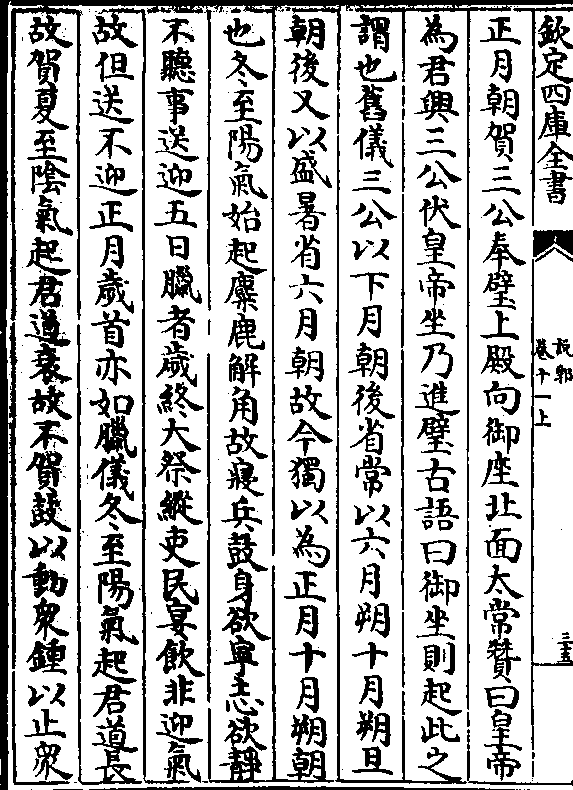 欽定四庫全書
說郛
卷十一上
三五
正月朝賀三公奉璧上殿向御座北面太常贊曰皇帝
為君興三公伏皇帝坐乃進璧古語曰御坐則起此之
謂也舊儀三公以下月朝後省常以六月朔十月朔旦
朝後又以盛暑省六月朝故今獨以為正月十月朔朝
也冬至陽氣始起麋鹿解角故寢兵鼓身欲寧志欲靜
不聽事送迎五日臘者歲終大祭縱吏民宴飲非迎氣
故但送不迎正月歲首亦如臘儀冬至陽氣起君道長
故賀夏至陰氣起君道衰故不賀鼓以動衆鍾以止衆